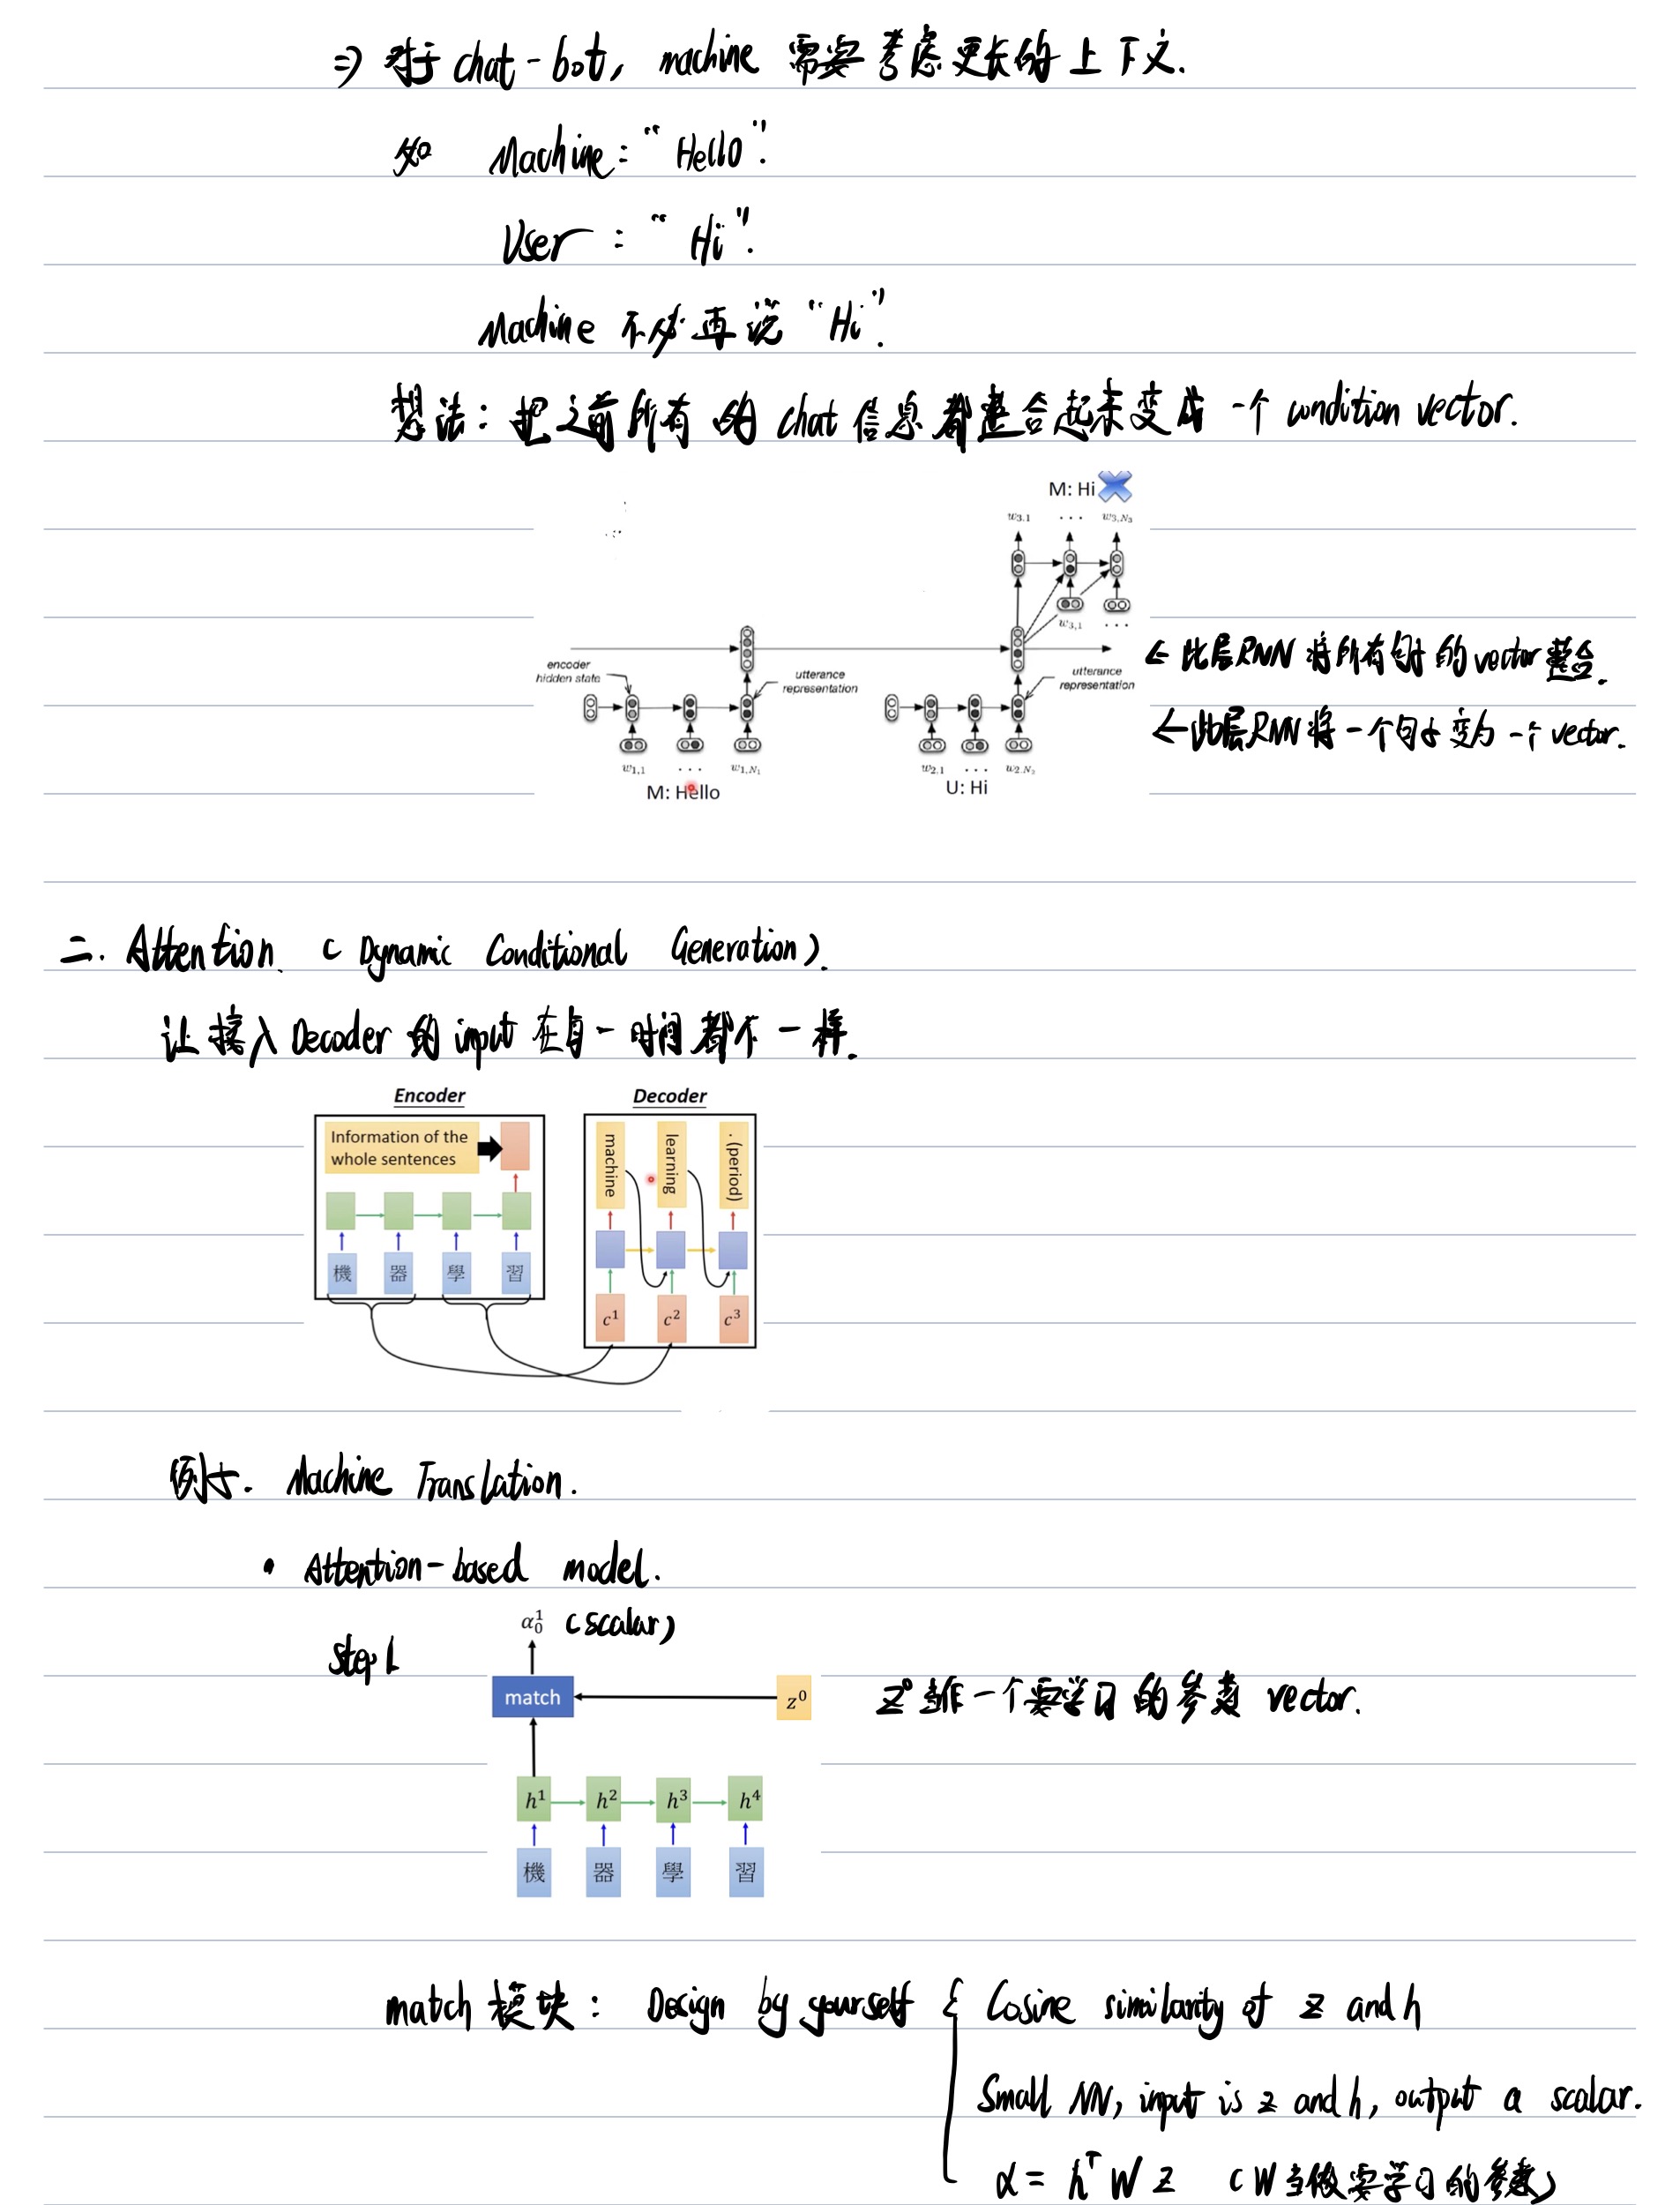 ⇒) 对于 chat-bot, machine 需要考虑更长的上下文.
如 Machine: "Hello".
User: "Hi".
Machine 不必再说 "Hi".
想法: 把之前所有的 chat 信息都整合起来变成一个 condition vector.
M: Hi
w3,1 ... w3,N3
w3,1 ...
← 此层RNN 将所有句子的 vector 整合.
encoder hidden state
utterance representation
utterance representation
← 此层RNN 将一个句子变为一个 vector.
w1,1 ... w1,N1
w2,1 ... w2,N2
M: Hello
U: Hi
二. Attention. (Dynamic Conditional Generation).
让接入 Decoder 的 input 在每一时间都不一样.
Encoder
Decoder
Information of the
whole sentences
machine
learning
. (period)
機 器 學 習
c¹ c² c³
例子. Machine Translation.
• Attention-based model.
α₀¹ (scalar)
Step 1
match
z⁰
z⁰ 当作一个要学习的参数 vector.
h¹ h² h³ h⁴
機 器 學 習
match 模块: Design by yourself { Cosine similarity of z and h
Small NN, input is z and h, output a scalar.
α = hᵀ W z (W当做要学习的参数)